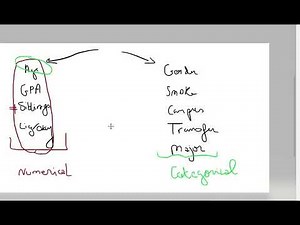 Age
GPA
Siblings
Cig/day
Numerical
Gender
Smoke
Campus
Transfer
Major
Categorical